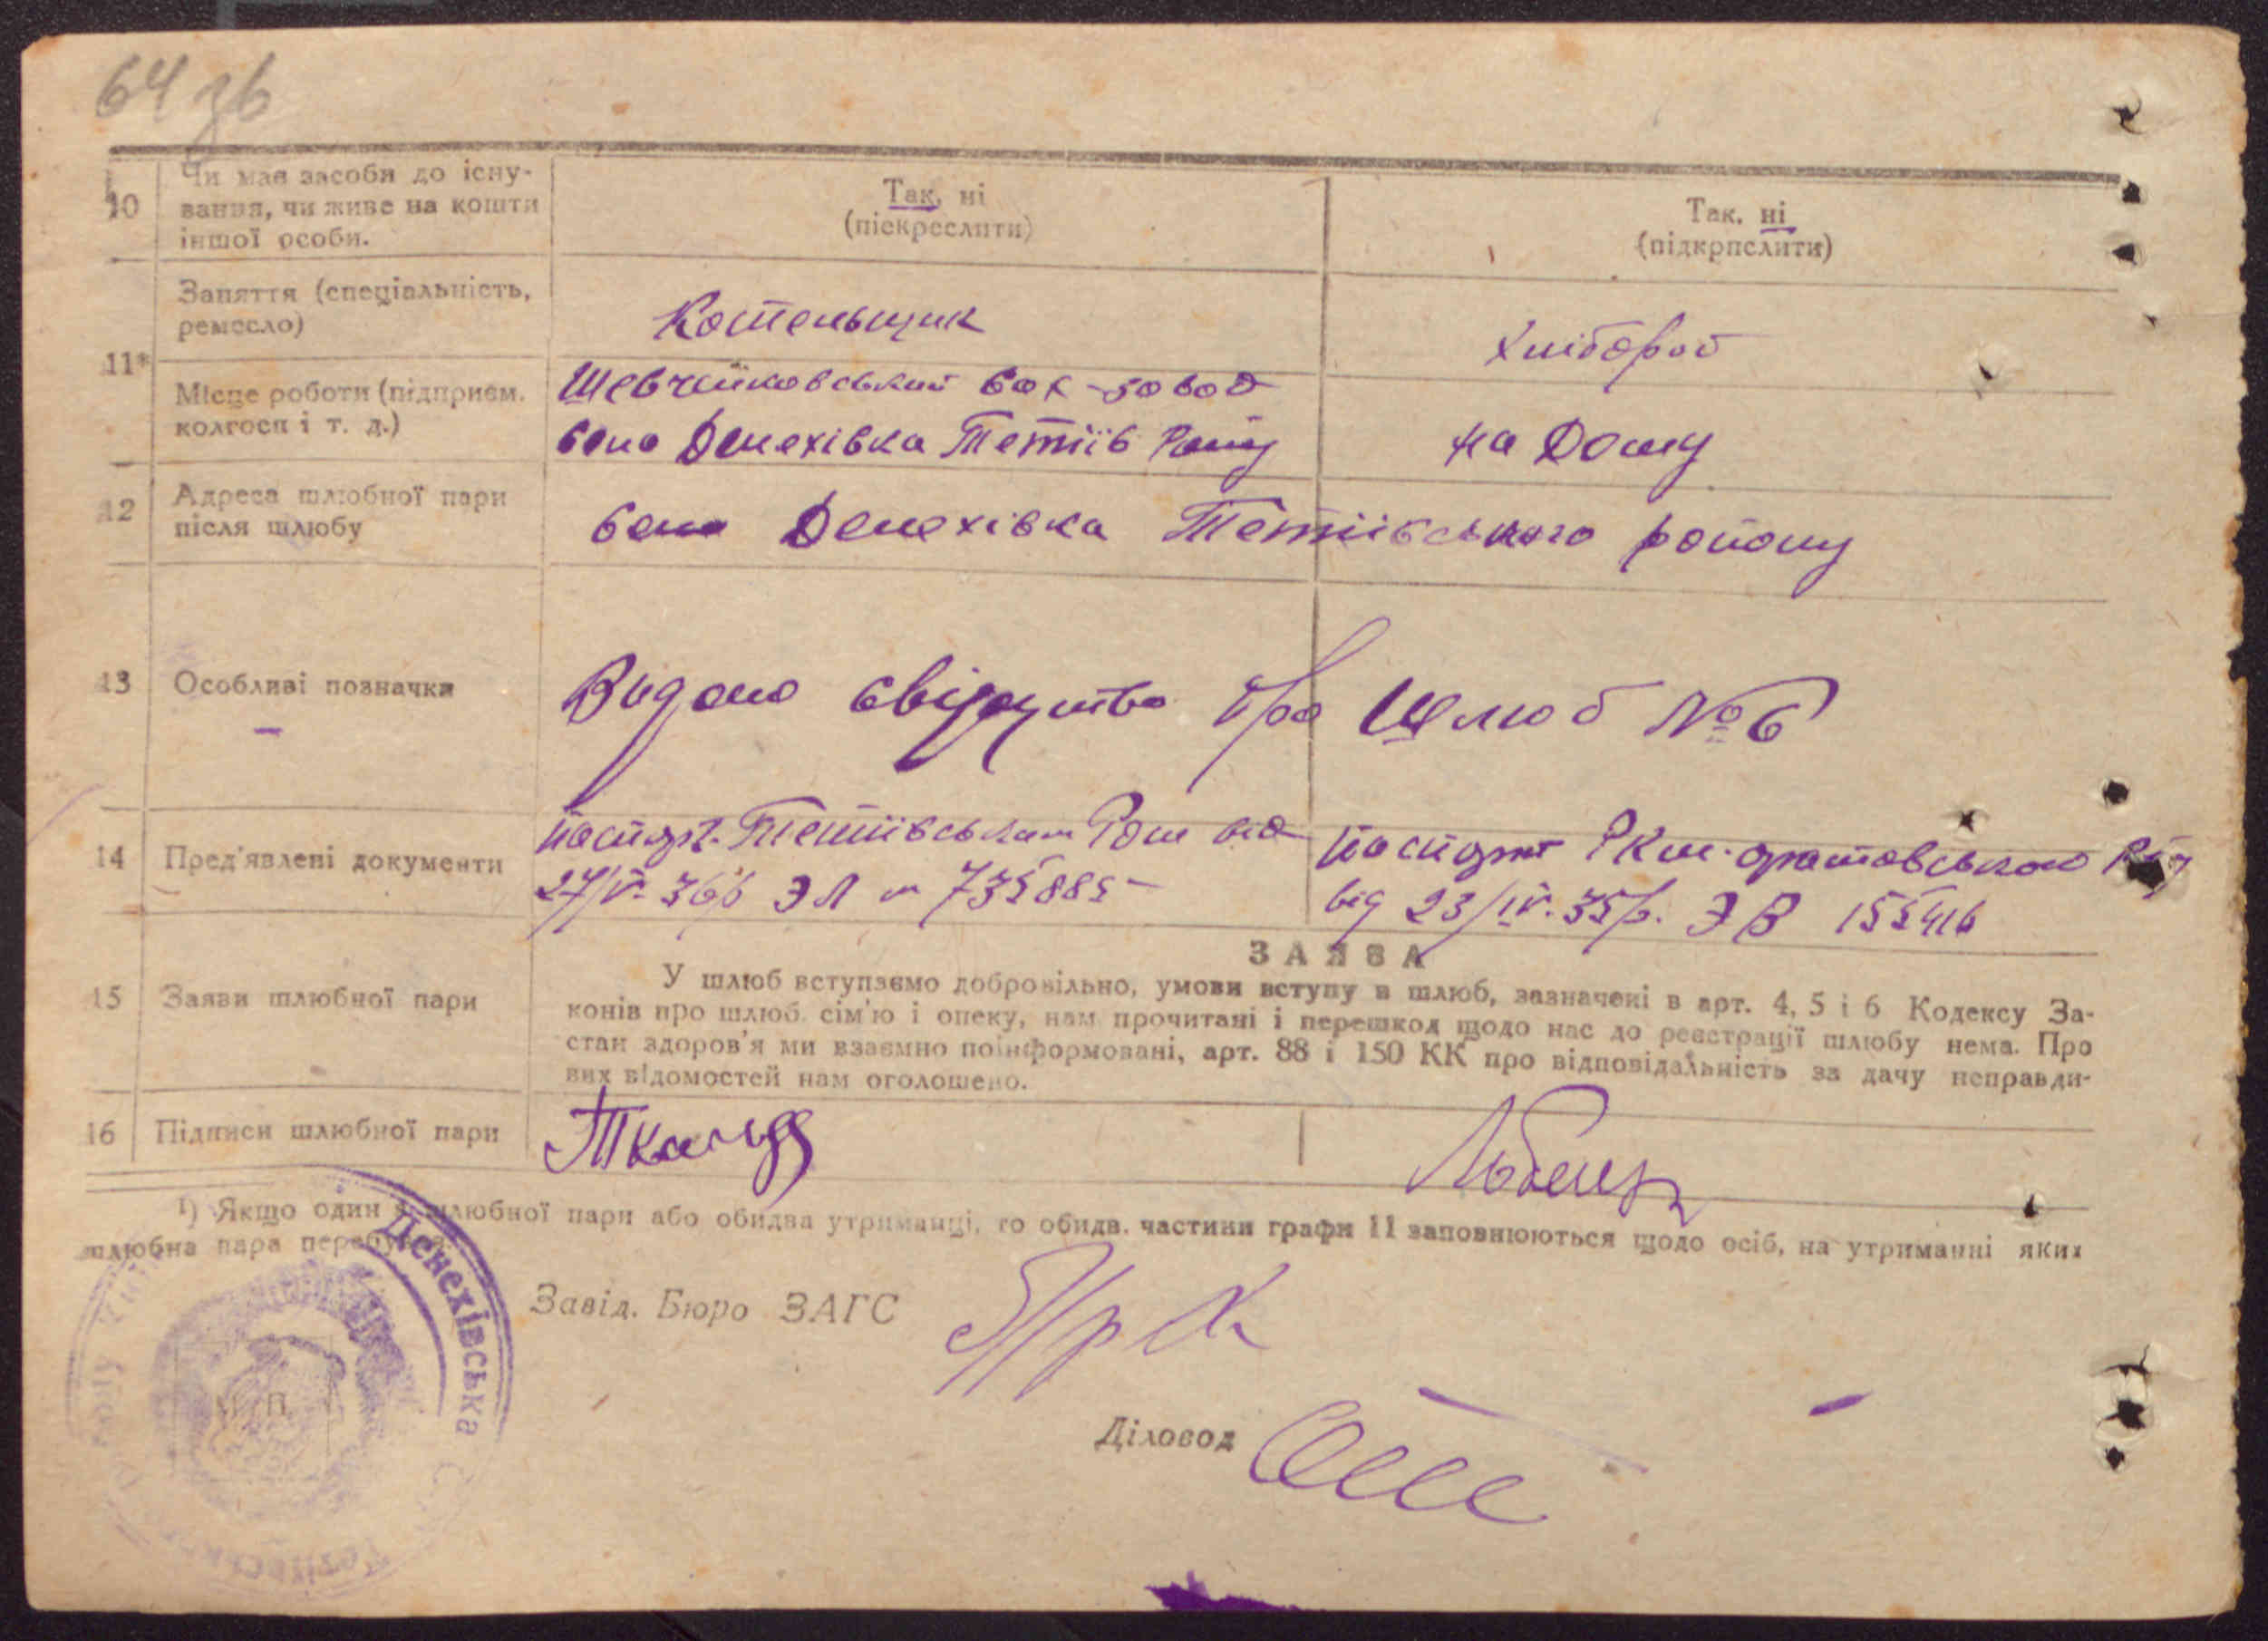 64 зв
10 Чи має засоби до існу-
вання, чи живе на кошти
іншої особи.
Так, ні
(піскреслити)
Так, ні
(підкрпслити)
11* Заняття (спеціальність,
ремесло)
Котельщик
Хлібороб
Місце роботи (підприєм.
колгосп і т. д.)
Шевченковський
село Денехівка Тетіїв
на Дому
12 Адреса шлюбної пари
після шлюбу
село Денехівка Тетіївського району
13 Особливі позначки
Видано свідуцтво про Шлюб № 6
14 Пред'явлені документи
паспорт Тетіївським від
27/V- 36р ЭЛ № 735885
паспорт
від 23/IV. 35р. ЭВ 155416
ЗАЯВА
15 Заяви шлюбної пари
У шлюб вступаємо добровільно, умови вступу в шлюб, зазначені в арт. 4, 5 і 6 Кодексу За-
конів про шлюб. сім'ю і опеку, нам прочитані і перешкод щодо нас до реєстрації шлюбу нема. Про
стан здоров'я ми взаємно поінформовані, арт. 88 і 150 КК про відповідальність за дачу неправди-
вих відомостей нам оголошено.
16 Підписи шлюбної пари
¹) Якщо один з шлюбної пари або обидва утриманці, то обидв. частини графи 11 заповнюються щодо осіб, на утриманні яких
шлюбна пара перебуває.
Завід. Бюро ЗАГС
Діловод
Денехівська